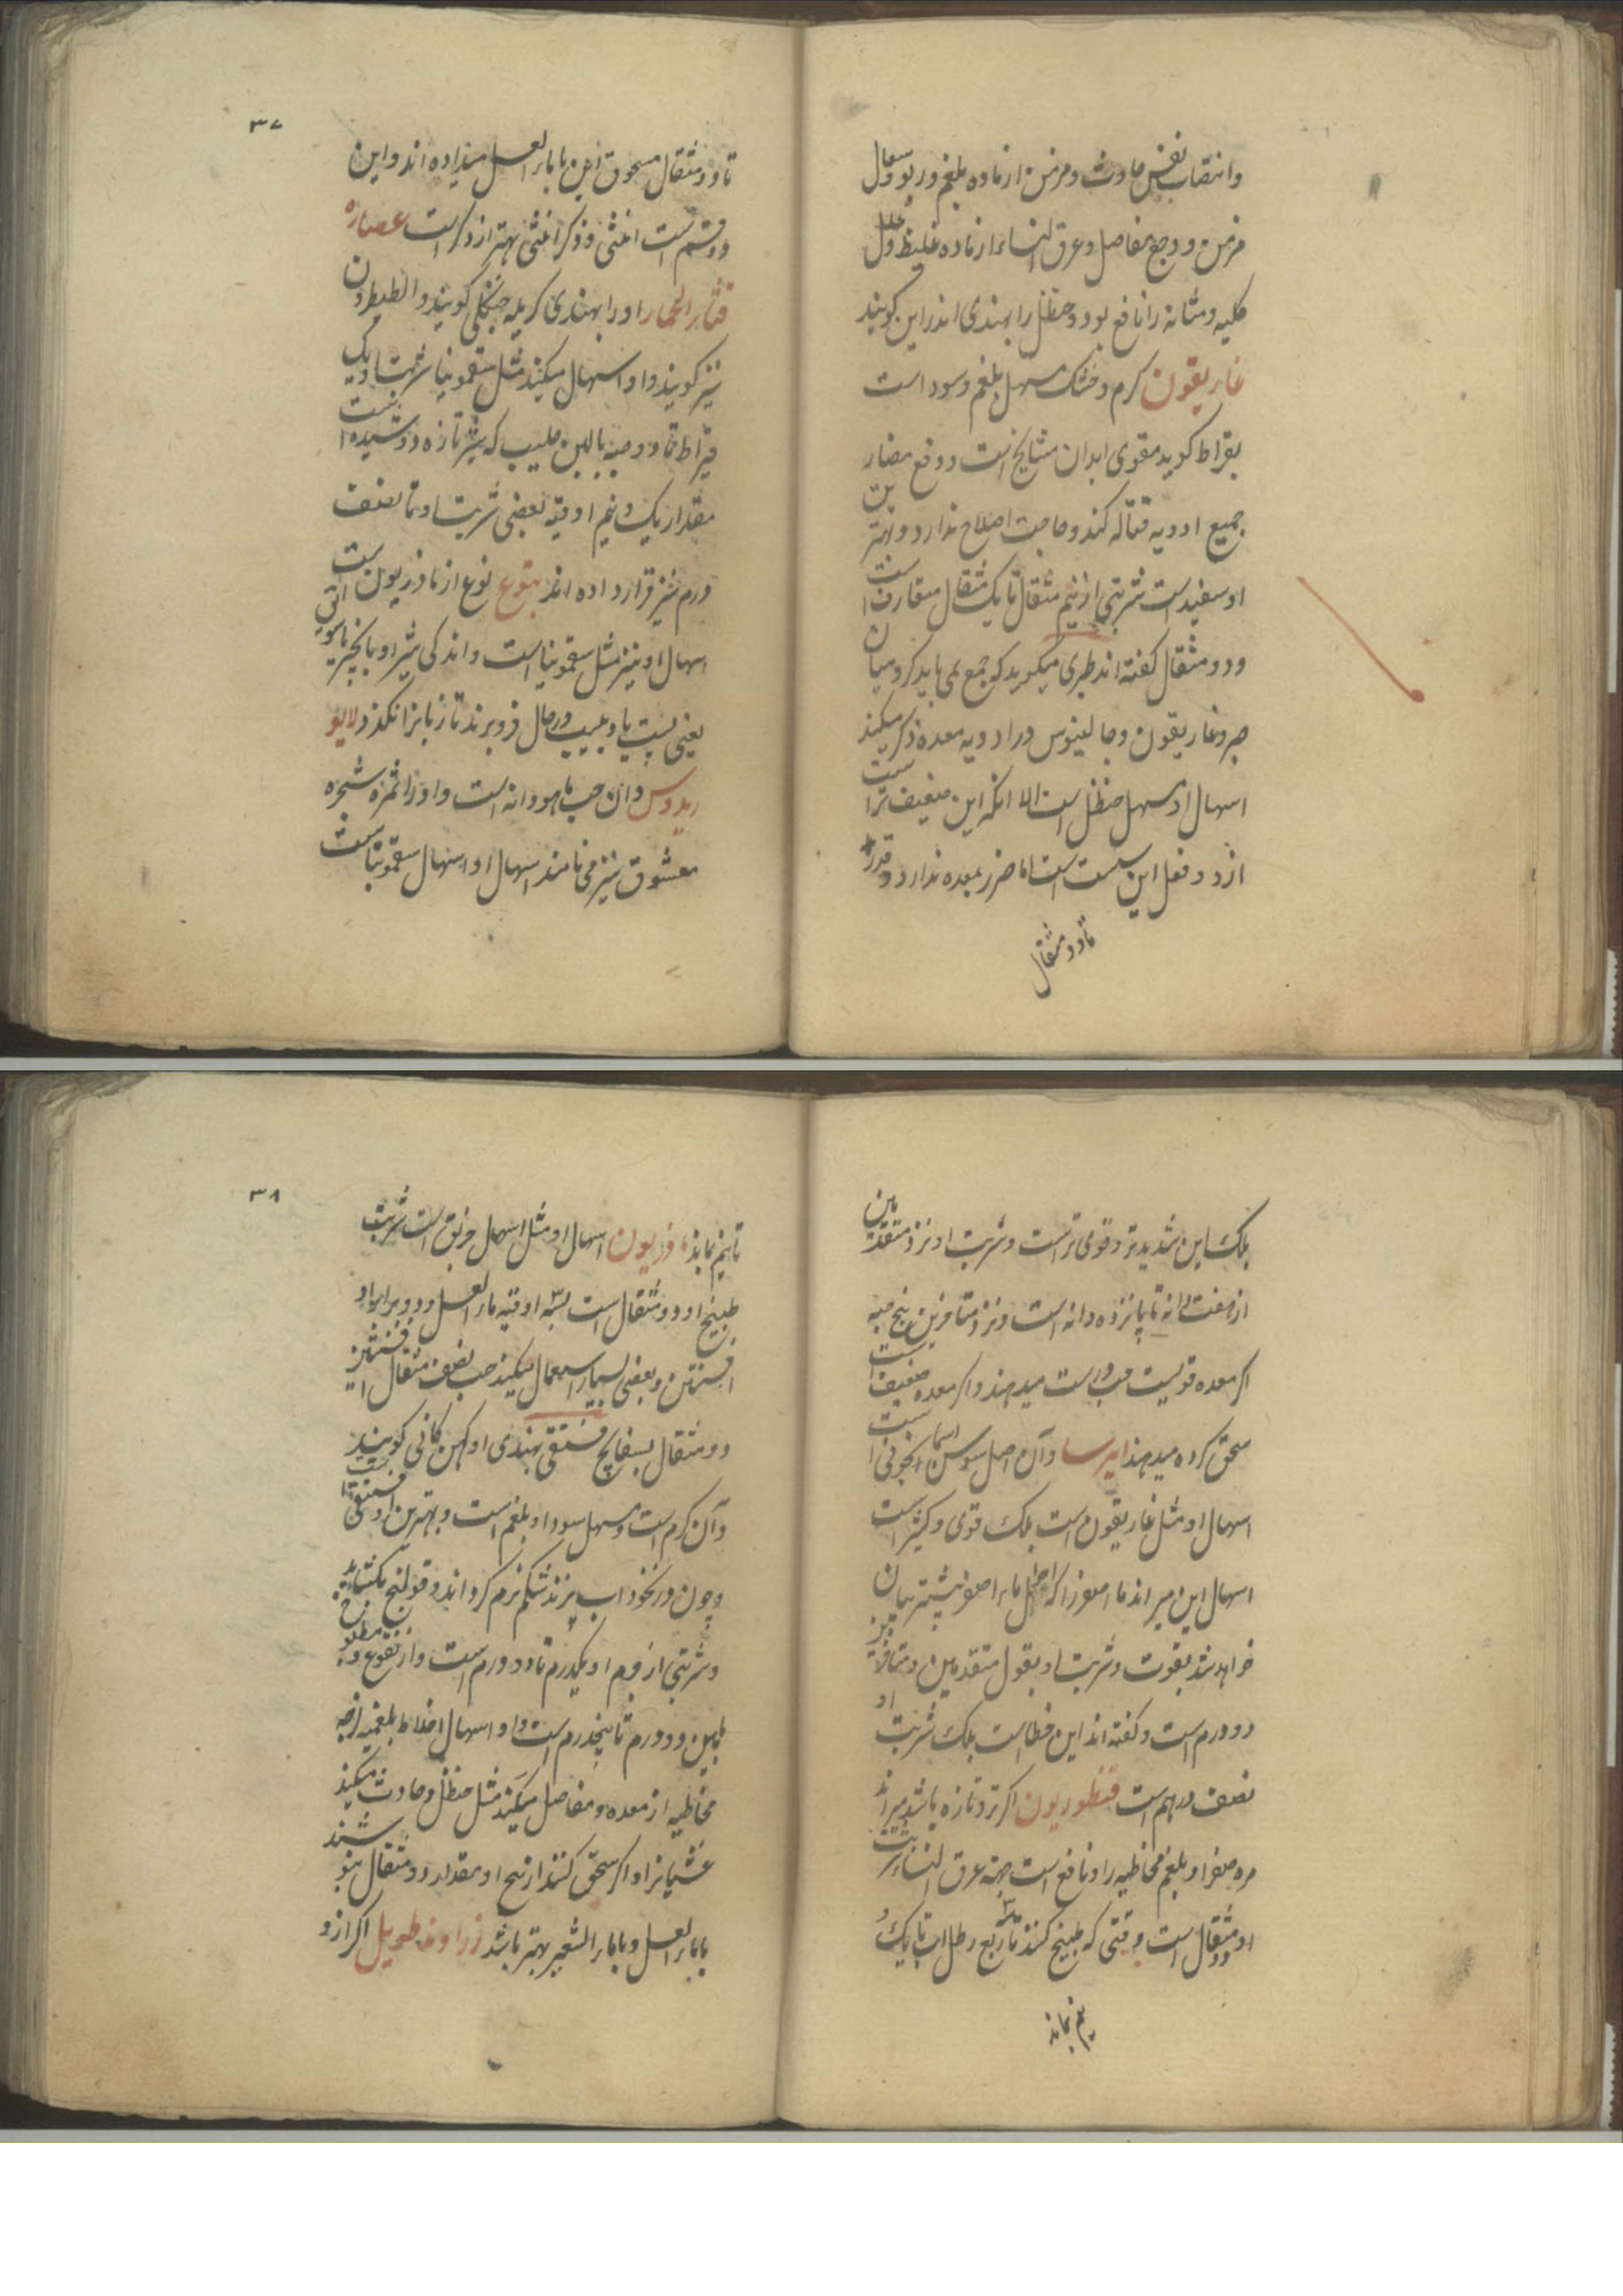 وانتصاب نفس حادث و مزمن از ماده بلغم و ربو و سعال
مزمن و وجع مفاصل و عرق النساء از ماده غلیظ و علل
کلیه و مثانه را نافع بود و حنظل را بهندی اندراین کویند
غاریقون کرم و خشک مسهل بلغم و سودا ست
بقراط کوید مقوی ابدان مشایخ است و دفع مضار
جمیع ادویه قتاله کند و حاجت اصلاح ندارد و بهترین
او سفید است شربتی از نیم مثقال تا یک مثقال متعارف است
و دو مثقال کفته اند طبری میکوید که جمع نمی باید کرد میان
صبر و غاریقون و جالینوس در ادویه معده ذکر میکند
اسهال او مسهل حنظل است الا انکه این ضعیف تر است
ازو و فعل این سست است اما ضرر بمعده ندارد و قدر
تا دو مثقال
۳۷
تا دو مثقال مسحوق این با ماء العسل میداده اند و این
دو قسم است انثی و ذکر انثی بهتر از ذکر است عصاره
قثاء الحمار او را بهندی کریله جنکلی کویند و الطیطرون
نیز کویند و او اسهال میکند مثل سقمونیا شربت او یک
قیراط تا دو حبه باللبن حلیب که شیر تازه دوشیده است
مقدار یک و نیم اوقیه بعضی شربت او تا نصف
درم نیز قرار داده اند یتوع نوع از ماذریون است
اسهال او نیز مثل سقمونیا است و اندکی شیر او با
یعنی پست یا و بلبیب در حال فرو برند تا زبان را نکزد لایو
ریدوس وان حب ماهودانه است و او را ثمره شجره
معشوق نیز می نامند اسهال او اسهال سقمونیا ست
بلک این شدیدتر و قوی تر است و شربت او نزد متقدمین
از هفت دانه تا پانزده دانه است و نزد متاخرین پنج حبه
اکر معده قویست حب درست میدهند و اکر معده ضعیف است
سحق کرده میدهند ایرسا و آن اصل سوس اسمانجونی است
اسهال او مثل غاریقون است بلک قوی و کثیر است
اسهال این میراند ماء اصفر را که اصل ماء اصفر بیشتر بیان
خواهد شد بقوت و شربت او بقول متقدمین و متاخرین
دو درم است و کفته اند این خطاست بلک شربت او
نصف درهم است قنطوریون اکر تر و تازه باشد میراند
مره صفرا و بلغم مخاطیه را و نافع است جهة عرق النساء شربت
او دو مثقال است وقتی که طبیخ کنند تا ربع رطل اب تا یک و
نیم بماند
۳۸
تا نیم بماند فربیون اسهال او مثل اسهال خربق است شربت
طبیخ او دو مثقال است بسه اوقیه ماء العسل و دو برابر او
افسنتین و بعضی بسیار استعمال میکنند حب نصف مثقال افسنتین
دو مثقال بسفایج فستقی بهندی او کهن کانی کویند
و آن کرم است و مسهل سودا و بلغم است و بهترین او فستقی است
و چون در نخود اب پزند شکم نرم کرداند و قولنج بکشاید
و شربتی از جرم او یکدرم تا دو درم است و از نقوع و مطبوخ
مابین دو درم تا پنجدرم است و او اسهال اخلاط بلغمیه لزجه
مخاطیه از معده و مفاصل میکند مثل حنظل و حادث میکند
غشیان را و اکر سحق کنند از بیخ او مقدار دو مثقال بنوشند
با ماء العسل و یا ماء الشعیر بهتر باشد زراوند طویل اکر ازو